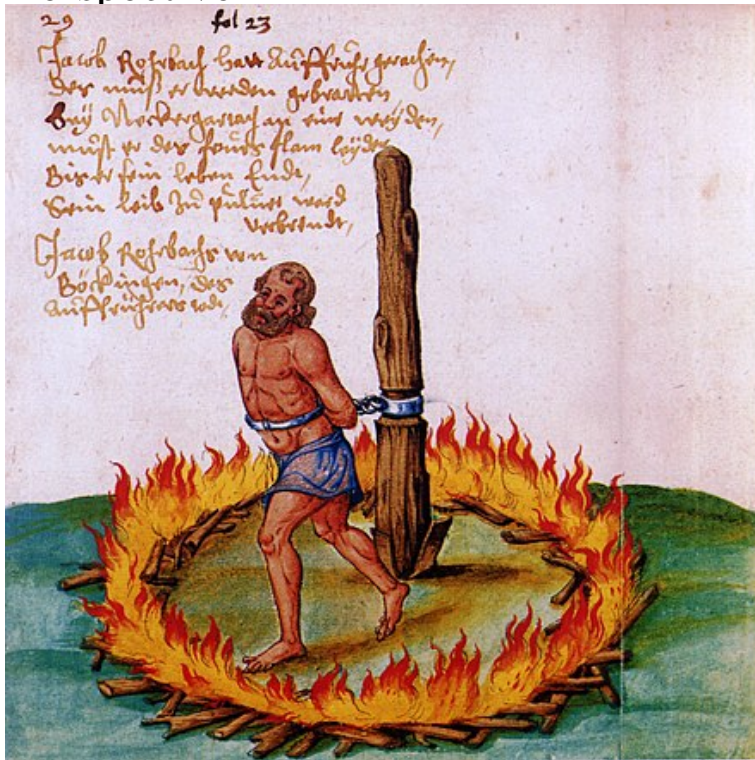 29 fol 23
Jacob Rohrbach hatt Auffruhr
des muß er werden gebratten
Bey Neckergartach an eine weyden,
must er des feurs flam leyden
Bis er sein leben Endt,
Sein leib zu pulver ward
verbrendt,
Jacob Rohrbachs von
Böckingen, des
Auffrührers